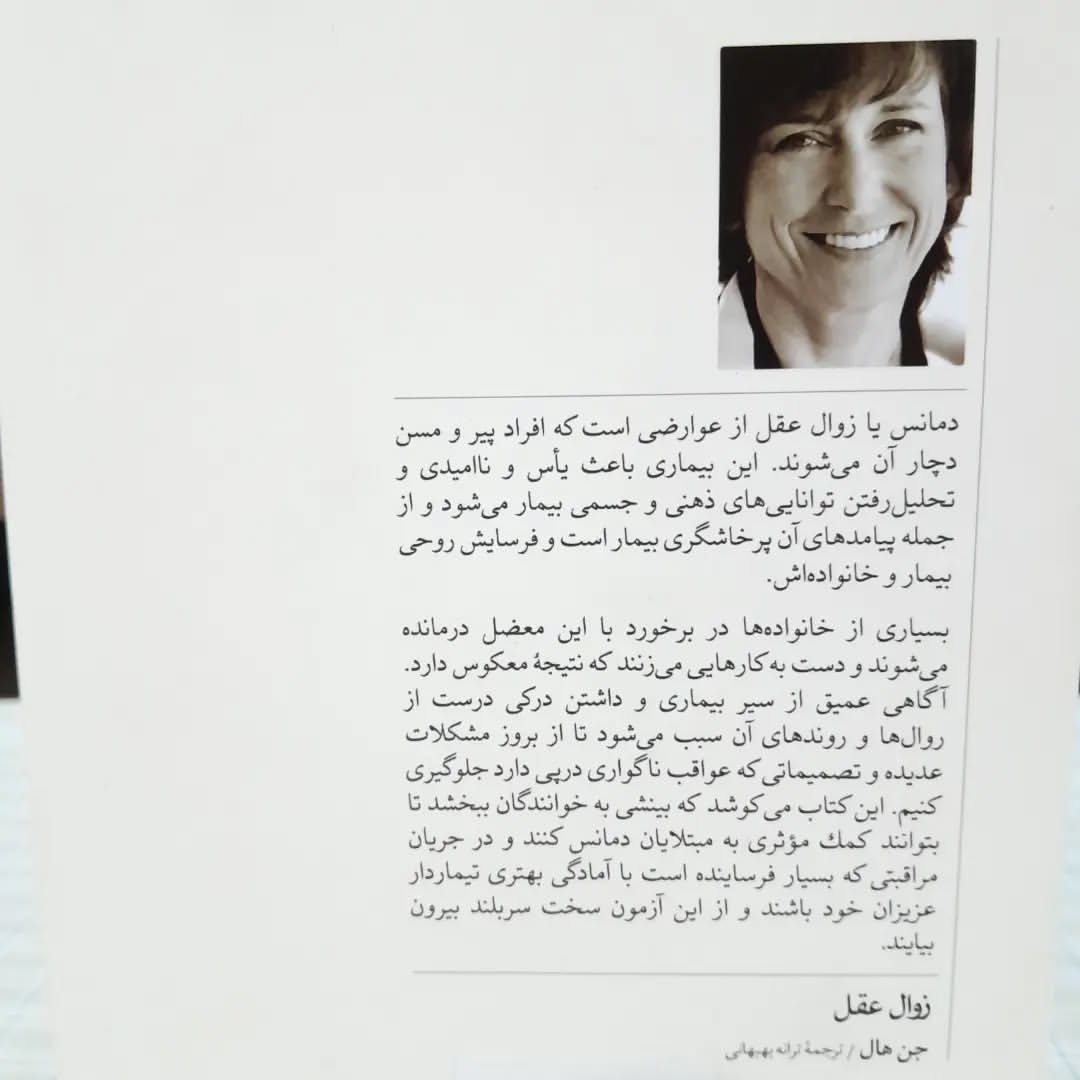 دمانس یا زوال عقل از عوارضی است که افراد پیر و مسن
دچار آن می‌شوند. این بیماری باعث یأس و ناامیدی و
تحلیل‌رفتن توانایی‌های ذهنی و جسمی بیمار می‌شود و از
جمله پیامدهای آن پرخاشگری بیمار است و فرسایش روحی
بیمار و خانواده‌اش.
بسیاری از خانواده‌ها در برخورد با این معضل درمانده
می‌شوند و دست به‌کارهایی می‌زنند که نتیجهٔ معکوس دارد.
آگاهی عمیق از سیر بیماری و داشتن درکی درست از
روال‌ها و روندهای آن سبب می‌شود تا از بروز مشکلات
عدیده و تصمیماتی که عواقب ناگواری درپی دارد جلوگیری
کنیم. این کتاب می‌کوشد که بینشی به خوانندگان ببخشد تا
بتوانند کمك مؤثری به مبتلایان دمانس کنند و در جریان
مراقبتی که بسیار فرساینده است با آمادگی بهتری تیماردار
عزیزان خود باشند و از این آزمون سخت سربلند بیرون
بیایند.
زوال عقل
جن هال / ترجمهٔ ترانه بهبهانی